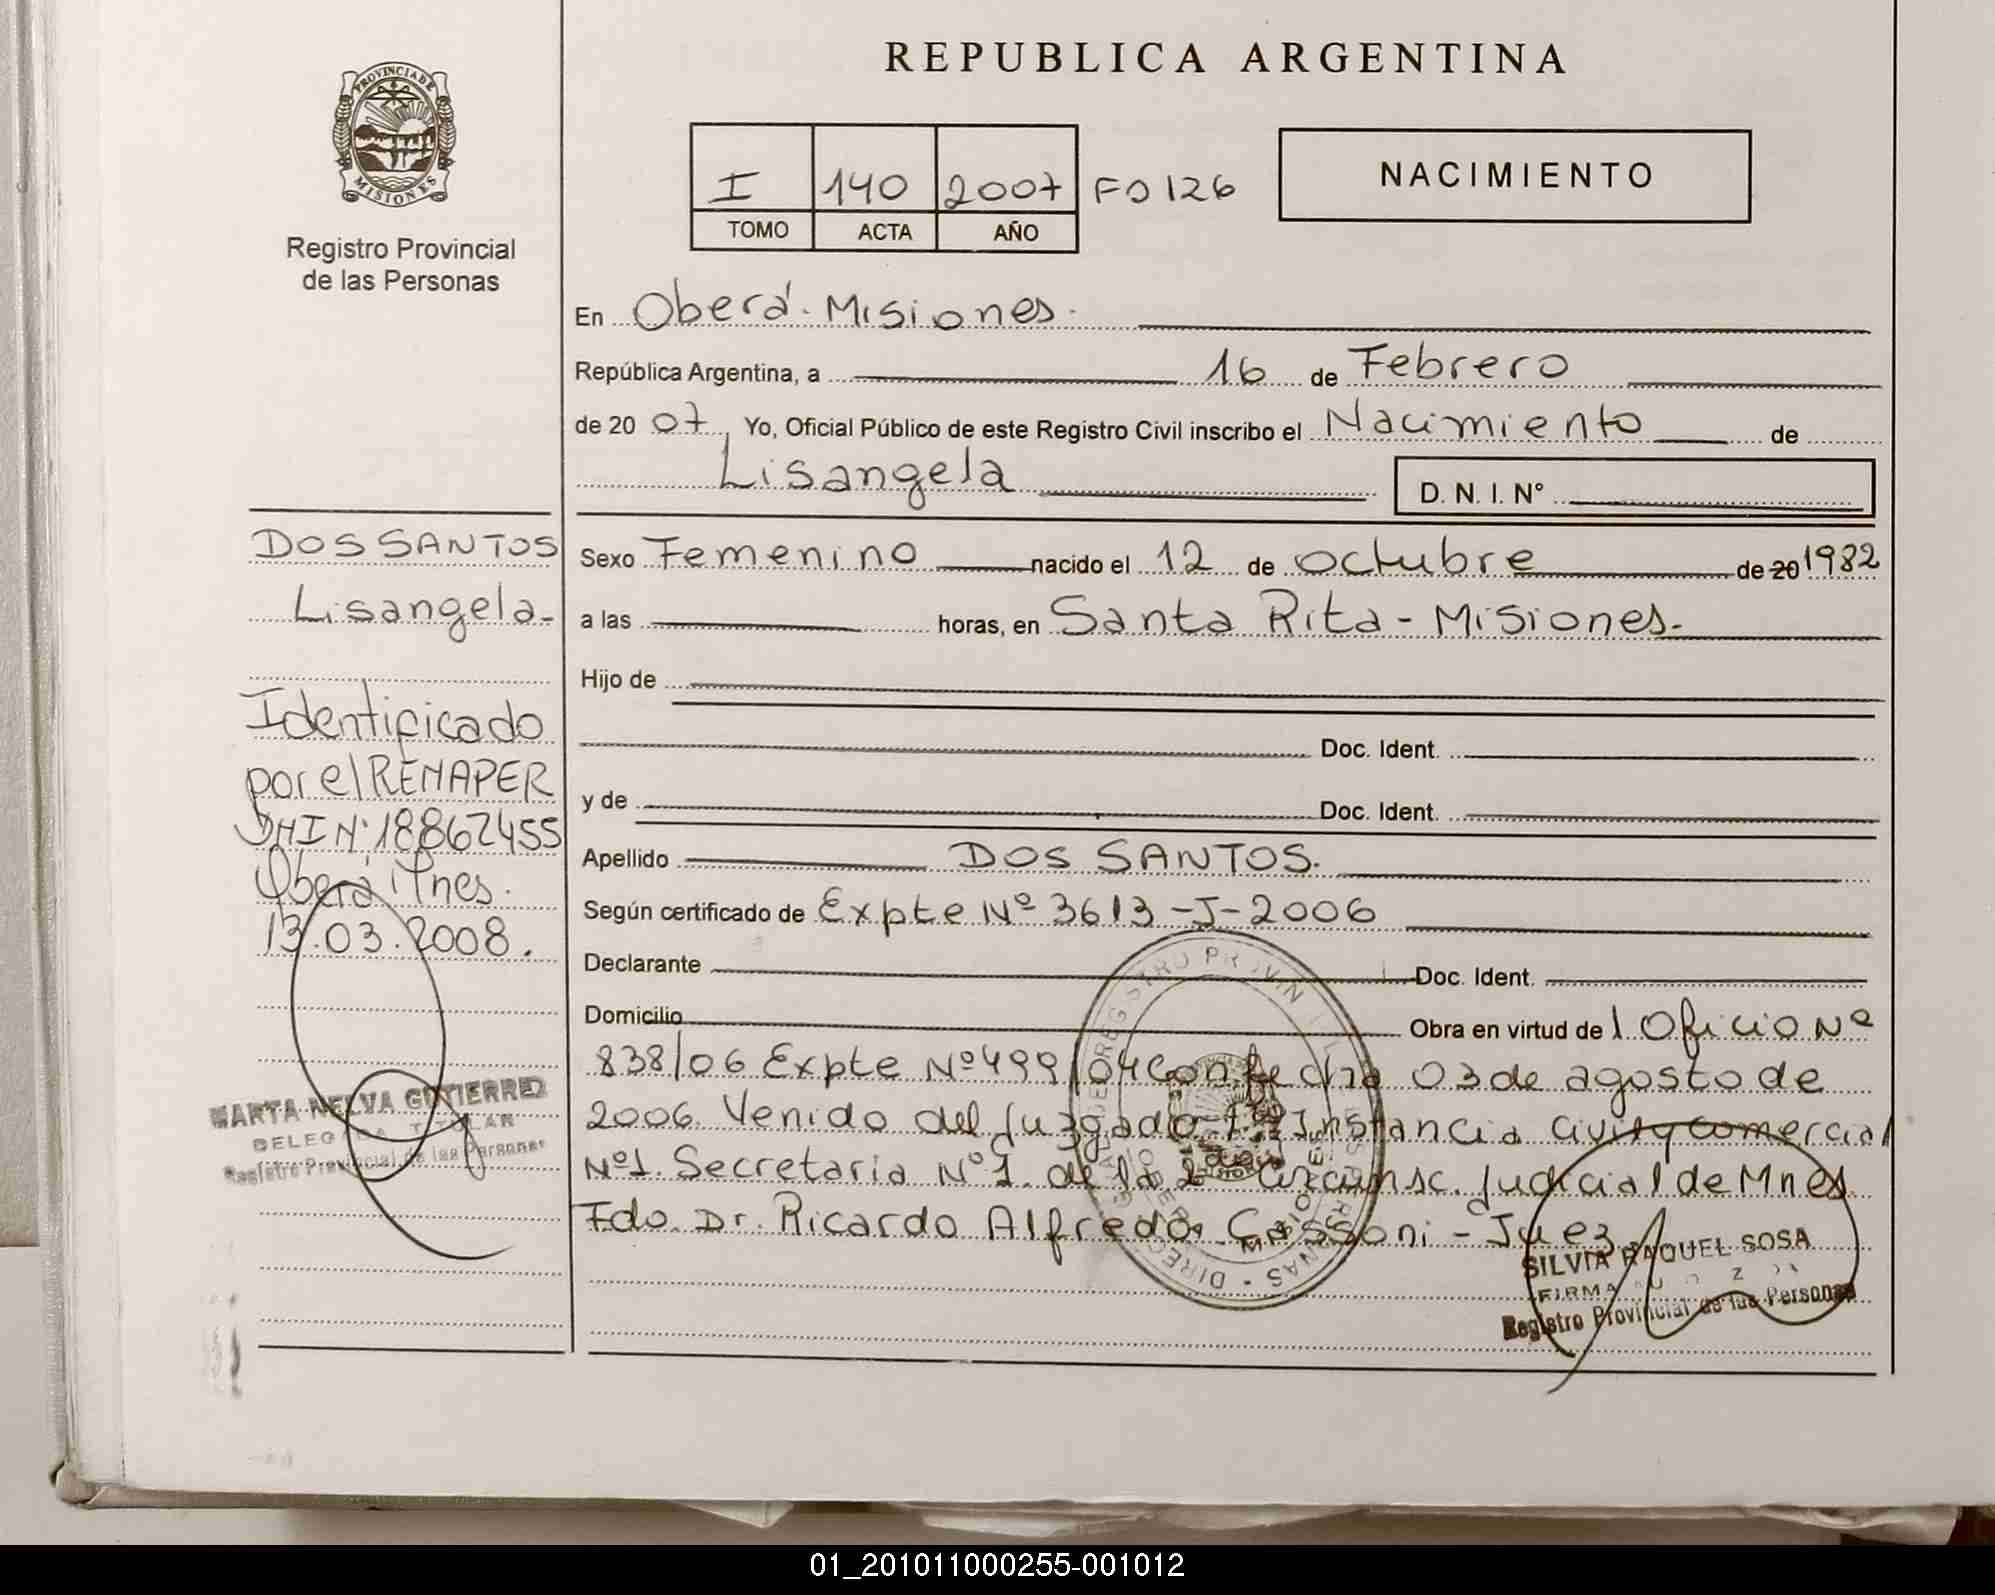 REPUBLICA ARGENTINA
PROVINCIA DE
MISIONES
Registro Provincial
de las Personas
I 140 2007 Fo 126
TOMO ACTA AÑO
NACIMIENTO
En Oberá. Misiones.
República Argentina, a 16 de Febrero
de 20 07, Yo, Oficial Público de este Registro Civil inscribo el Nacimiento de
Lisangela D. N. I. N°
DOS SANTOS
Lisangela-
Identificado
por el RENAPER
DNI N° 18862455
Oberá, Mnes.
13.03.2008.
MARTA NELVA GUTIERREZ
DELEGADA TITULAR
Registro Provincial de las Personas
Sexo Femenino nacido el 12 de Octubre de 20 1982
a las horas, en Santa Rita - Misiones.
Hijo de
Doc. Ident.
y de Doc. Ident.
Apellido DOS SANTOS.
Según certificado de Expte Nº 3613-J-2006
Declarante Doc. Ident.
Domicilio Obra en virtud del Oficio Nº
838/06 Expte Nº 499/04 Con fecha 03 de agosto de
2006. Venido del Juzgado Instancia Civil y Comercial
Nº1. Secretaria Nº1. de la 2da Circunsc. Judicial de Mnes.
Fdo. Dr. Ricardo Alfredo Cassoni - Juez.
SILVIA RAQUEL SOSA
FIRMA
Registro Provincial de las Personas
01_201011000255-001012